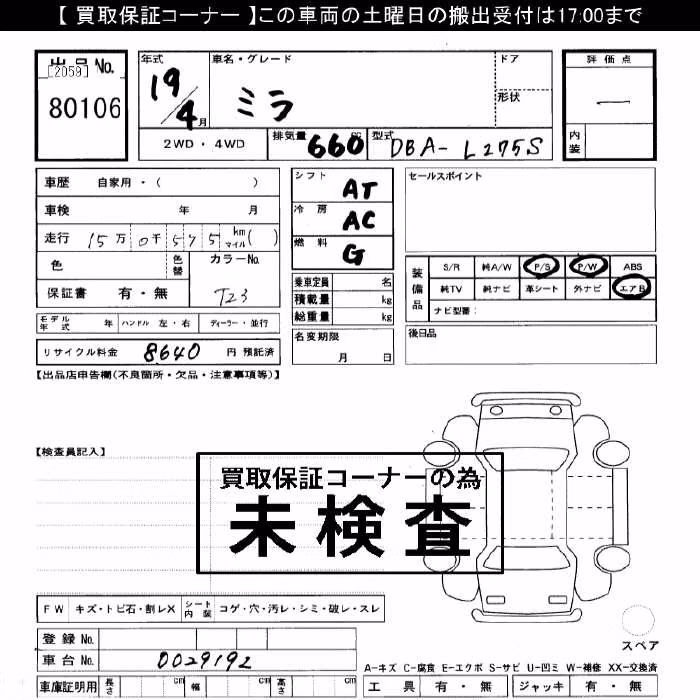 【 買取保証コーナー 】この車両の土曜日の搬出受付は17:00まで
出品 No.
[2059]
80106
年式
19/4月
車名・グレード
ミラ
ドア
形状
評価点
—
内装
2WD・4WD
排気量 660 cc
型式 DBA-L275S
車歴 自家用・( )
車検 年 月
走行 15万 0千 575 km マイル( )
色
色替
カラーNo.
T23
保証書 有・無
モデル年式 年 ハンドル 左・右 ディーラー・並行
リサイクル料金 8640 円 預託済
シフト AT
冷房 AC
燃料 G
乗車定員 名
積載量 kg
総重量 kg
名変期限
月 日
セールスポイント
装備品
S/R 純A/W P/S P/W ABS
純TV 純ナビ 革シート 外ナビ エアB
ナビ型番:
後日品
【出品店申告欄(不良箇所・欠品・注意事項等)】
【検査員記入】
買取保証コーナーの為
未検査
FW キズ・トビ石・割レX シート内装 コゲ・穴・汚レ・シミ・破レ・スレ
登録 No.
車台 No. 0029192
車庫証明用 長さ cm 幅 cm 高さ cm
スペア
A-キズ C-腐食 E-エクボ S-サビ U-凹ミ W-補修 XX-交換済
工具 有・無 ジャッキ 有・無